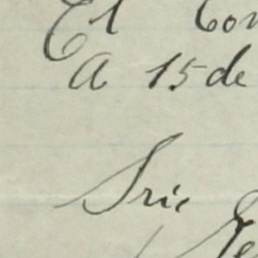 El Con
A 15 de
Sric